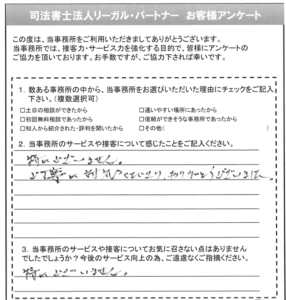 司法書士法人リーガル・パートナー お客様アンケート
この度は、当事務所をご利用いただきましてありがとうございます。
当事務所では、接客力・サービス力を強化する目的で、皆様にアンケートの
ご協力を頂いております。お手数ですが、ご協力下されば幸いです。
1. 数ある事務所の中から、当事務所をお選びいただいた理由にチェックをご記入
下さい。（複数選択可）
□土日の相談ができたから □通いやすい場所にあったから
□初回無料相談であったから □信頼ができそうな事務所であったから
□知人から紹介された・評判を聞いたから □その他（ ）
2. 当事務所のサービスや接客について感じたことをご記入ください。
特にございません。
ご丁寧に ありがとうございました。
3. 当事務所のサービスや接客についてお気に召さない点はありません
でしたでしょうか？今後のサービス向上の為、ご遠慮なくご指摘ください。
特にございません。